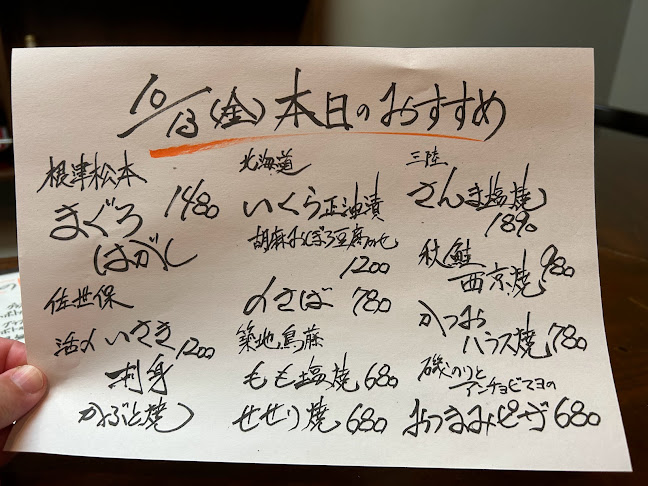 10/13(金)本日のおすすめ
根津松本
まぐろ 1480
はがし
佐世保
活〆いさき 1200
刺身
かぶと焼
北海道
いくら正油漬
胡麻おぼろ豆腐のせ
1200
〆さば 780
築地鳥藤
もも塩焼 680
せせり焼 680
三陸
さんま塩焼
1890
秋鮭 980
西京焼
かつお
ハラス焼 780
磯のりと
アンチョビマヨの
おつまみピザ 680